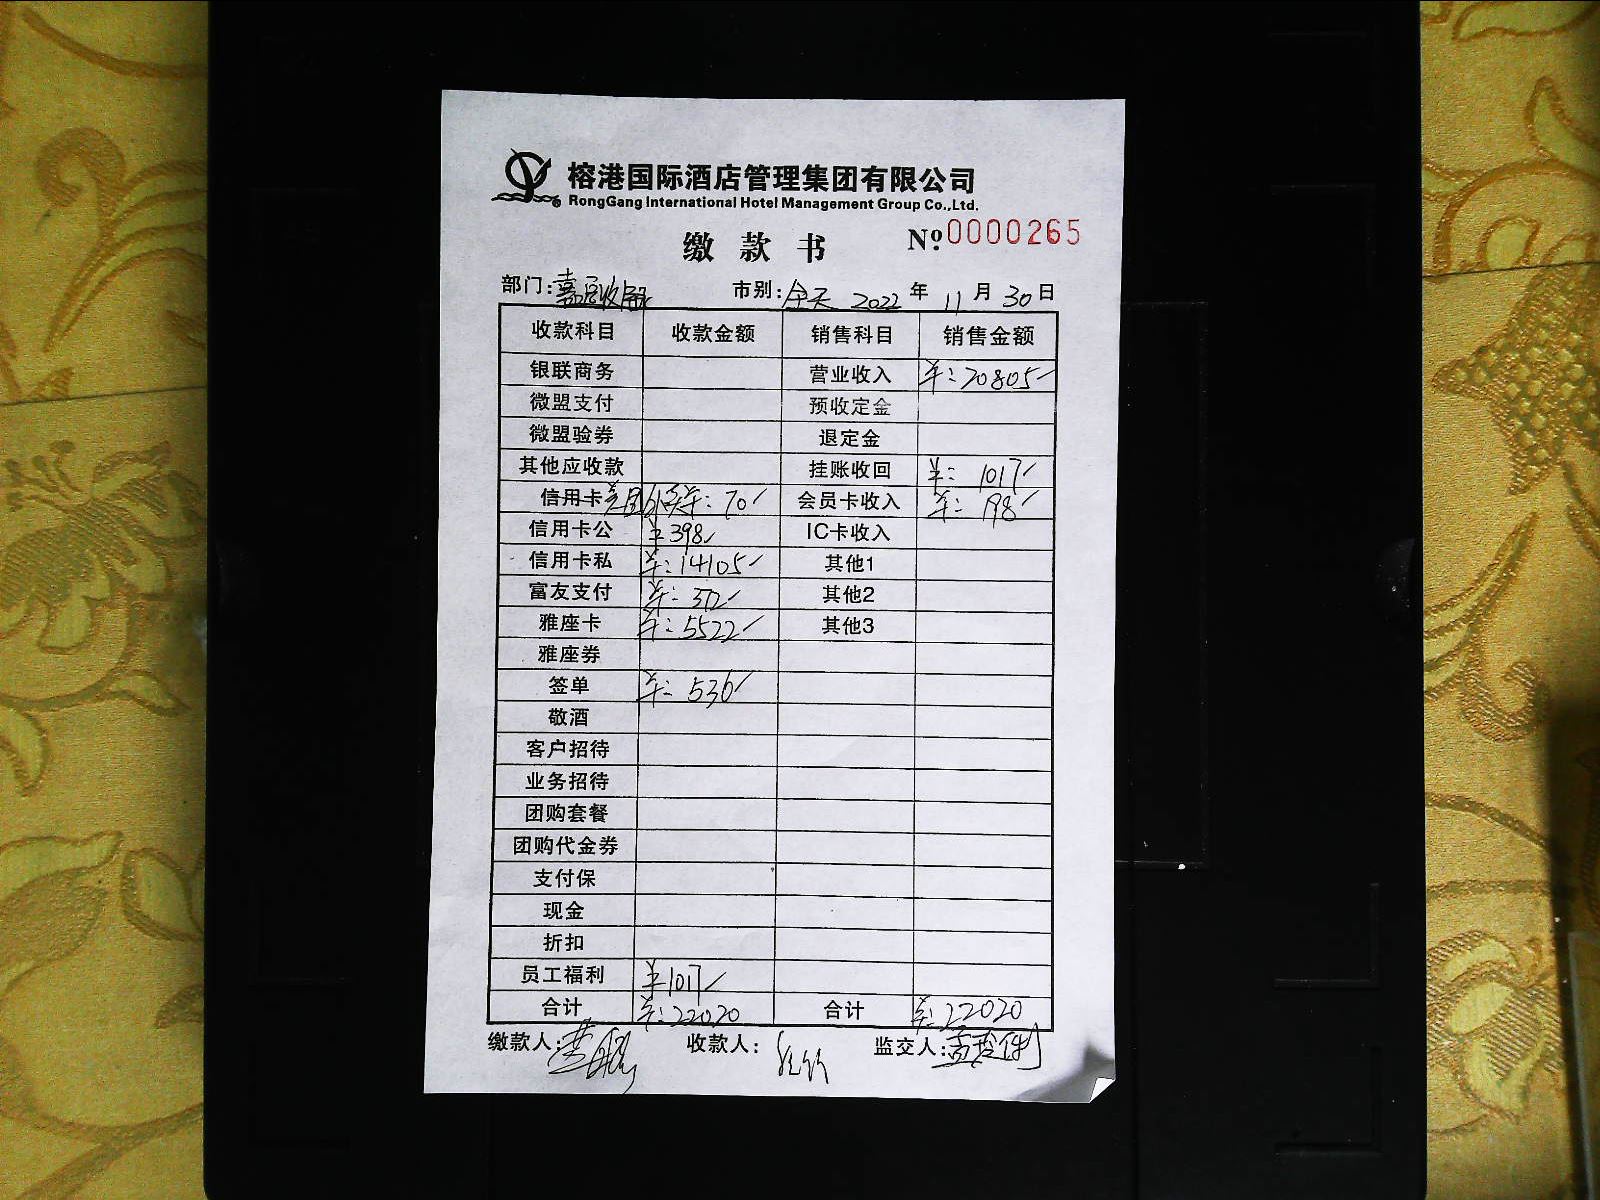 榕港国际酒店管理集团有限公司
RongGang International Hotel Management Group Co.,Ltd.
缴款书 №0000265
部门: 市别:全天 2022年11月30日
收款科目 收款金额 销售科目 销售金额
银联商务 营业收入 ¥:20805
微盟支付 预收定金
微盟验券 退定金
其他应收款 挂账收回 ¥:1017
信用卡美团外卖¥:70 会员卡收入 ¥:198
信用卡公 ¥398 IC卡收入
信用卡私 ¥:14105 其他1
富友支付 ¥:372 其他2
雅座卡 ¥:5522 其他3
雅座券
签单 ¥:536
敬酒
客户招待
业务招待
团购套餐
团购代金券
支付保
现金
折扣
员工福利 ¥1017
合计 ¥:22020 合计 ¥:22020
缴款人: 收款人: 监交人: